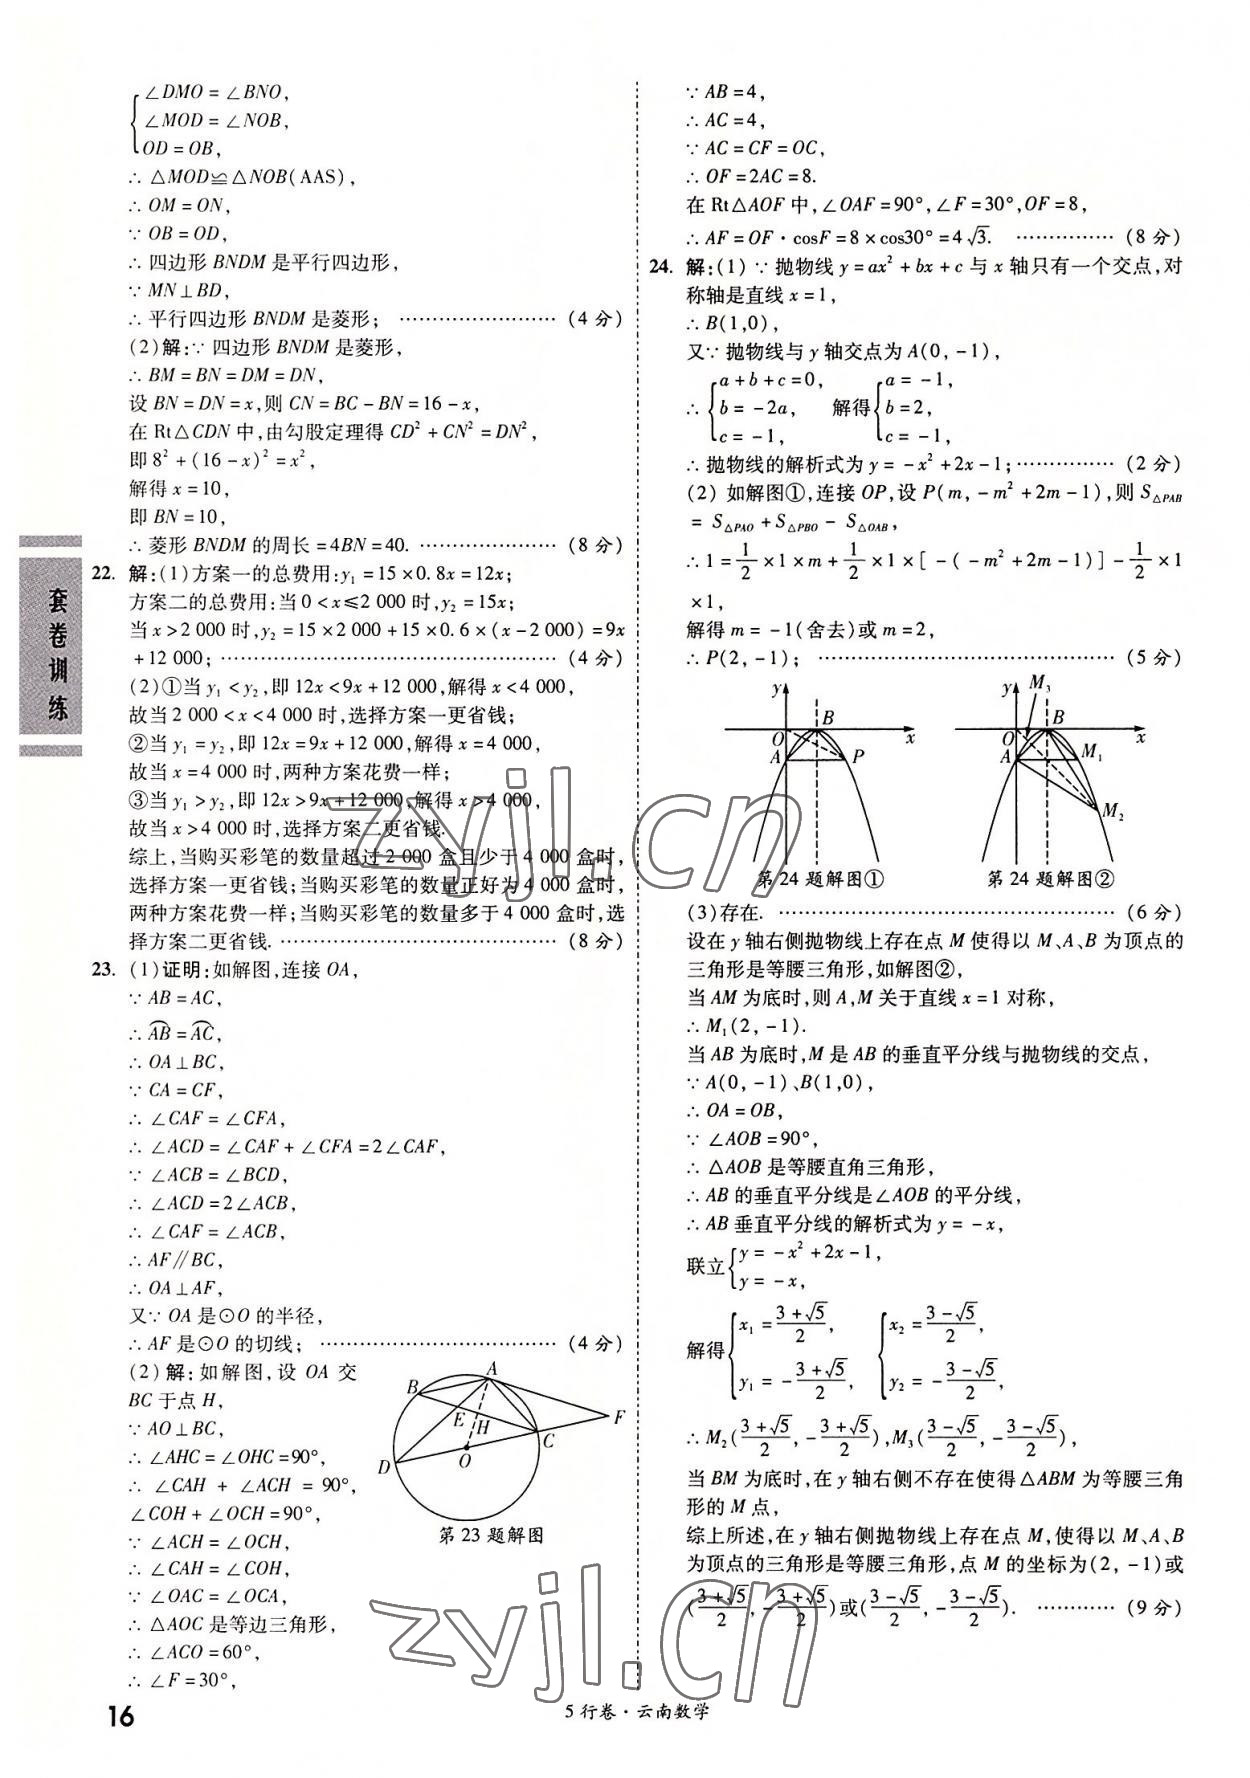 ∠DMO=∠BNO,
∠MOD=∠NOB,
OD=OB,
∴△MOD≌△NOB(AAS),
∴OM=ON,
∵OB=OD,
∴四边形BNDM是平行四边形,
∵MN⊥BD,
∴平行四边形BNDM是菱形; ……………………(4分)
(2)解:∵四边形BNDM是菱形,
∴BM=BN=DM=DN,
设BN=DN=x,则CN=BC-BN=16-x,
在Rt△CDN中,由勾股定理得CD²+CN²=DN²,
即8²+(16-x)²=x²,
解得x=10,
即BN=10,
∴菱形BNDM的周长=4BN=40. …………………(8分)
22. 解:(1)方案一的总费用:y₁=15×0.8x=12x;
方案二的总费用:当0<x≤2 000时,y₂=15x;
当x>2 000时,y₂=15×2 000+15×0.6×(x-2 000)=9x
+12 000; ……………………………………………(4分)
(2)①当y₁<y₂,即12x<9x+12 000,解得x<4 000,
故当2 000<x<4 000时,选择方案一更省钱;
②当y₁=y₂,即12x=9x+12 000,解得x=4 000,
故当x=4 000时,两种方案花费一样;
③当y₁>y₂,即12x>9x+12 000,解得x>4 000,
故当x>4 000时,选择方案二更省钱.
综上,当购买彩笔的数量超过2 000盒且少于4 000盒时,
选择方案一更省钱;当购买彩笔的数量正好为4 000盒时,
两种方案花费一样;当购买彩笔的数量多于4 000盒时,选
择方案二更省钱. ……………………………………(8分)
23. (1)证明:如解图,连接OA,
∵AB=AC,
∴⌒AB=⌒AC,
∴OA⊥BC,
∵CA=CF,
∴∠CAF=∠CFA,
∴∠ACD=∠CAF+∠CFA=2∠CAF,
∵∠ACB=∠BCD,
∴∠ACD=2∠ACB,
∴∠CAF=∠ACB,
∴AF∥BC,
∴OA⊥AF,
又∵OA是⊙O的半径,
∴AF是⊙O的切线; ………………………………(4分)
(2)解:如解图,设OA交
BC于点H,
∵AO⊥BC,
∴∠AHC=∠OHC=90°,
∴∠CAH+∠ACH=90°,
∠COH+∠OCH=90°,
∵∠ACH=∠OCH,
∴∠CAH=∠COH,
∵∠OAC=∠OCA,
∴△AOC是等边三角形,
∴∠ACO=60°,
∴∠F=30°,
A
B
E
H
F
C
D
O
第23题解图
∵AB=4,
∴AC=4,
∵AC=CF=OC,
∴OF=2AC=8.
在Rt△AOF中,∠OAF=90°,∠F=30°,OF=8,
∴AF=OF·cosF=8×cos30°=4√3. ……………(8分)
24. 解:(1)∵抛物线y=ax²+bx+c与x轴只有一个交点,对
称轴是直线x=1,
∴B(1,0),
又∵抛物线与y轴交点为A(0,-1),
∴{a+b+c=0, b=-2a, c=-1, 解得{a=-1, b=2, c=-1,
∴抛物线的解析式为y=-x²+2x-1;……………(2分)
(2)如解图①,连接OP,设P(m,-m²+2m-1),则S△PAB
=S△PAO+S△PBO-S△OAB,
∴1=1/2×1×m+1/2×1×[-(-m²+2m-1)]-1/2×1
×1,
解得m=-1(舍去)或m=2,
∴P(2,-1); ………………………………………(5分)
y
O
B
x
A
P
第24题解图①
y
M₃
B
O
x
A
M₁
M₂
第24题解图②
(3)存在. ……………………………………………(6分)
设在y轴右侧抛物线上存在点M使得以M、A、B为顶点的
三角形是等腰三角形,如解图②,
当AM为底时,则A,M关于直线x=1对称,
∴M₁(2,-1).
当AB为底时,M是AB的垂直平分线与抛物线的交点,
∵A(0,-1)、B(1,0),
∴OA=OB,
∵∠AOB=90°,
∴△AOB是等腰直角三角形,
∴AB的垂直平分线是∠AOB的平分线,
∴AB垂直平分线的解析式为y=-x,
联立{y=-x²+2x-1, y=-x,
解得{x₁=(3+√5)/2, y₁=-(3+√5)/2, {x₂=(3-√5)/2, y₂=-(3-√5)/2,
∴M₂((3+√5)/2,-(3+√5)/2),M₃((3-√5)/2,-(3-√5)/2),
当BM为底时,在y轴右侧不存在使得△ABM为等腰三角
形的M点,
综上所述,在y轴右侧抛物线上存在点M,使得以M、A、B
为顶点的三角形是等腰三角形,点M的坐标为(2,-1)或
((3+√5)/2,-(3+√5)/2)或((3-√5)/2,-(3-√5)/2). …………(9分)
套卷训练
16
5行卷·云南数学
zyjl.cn
zyjl.cn